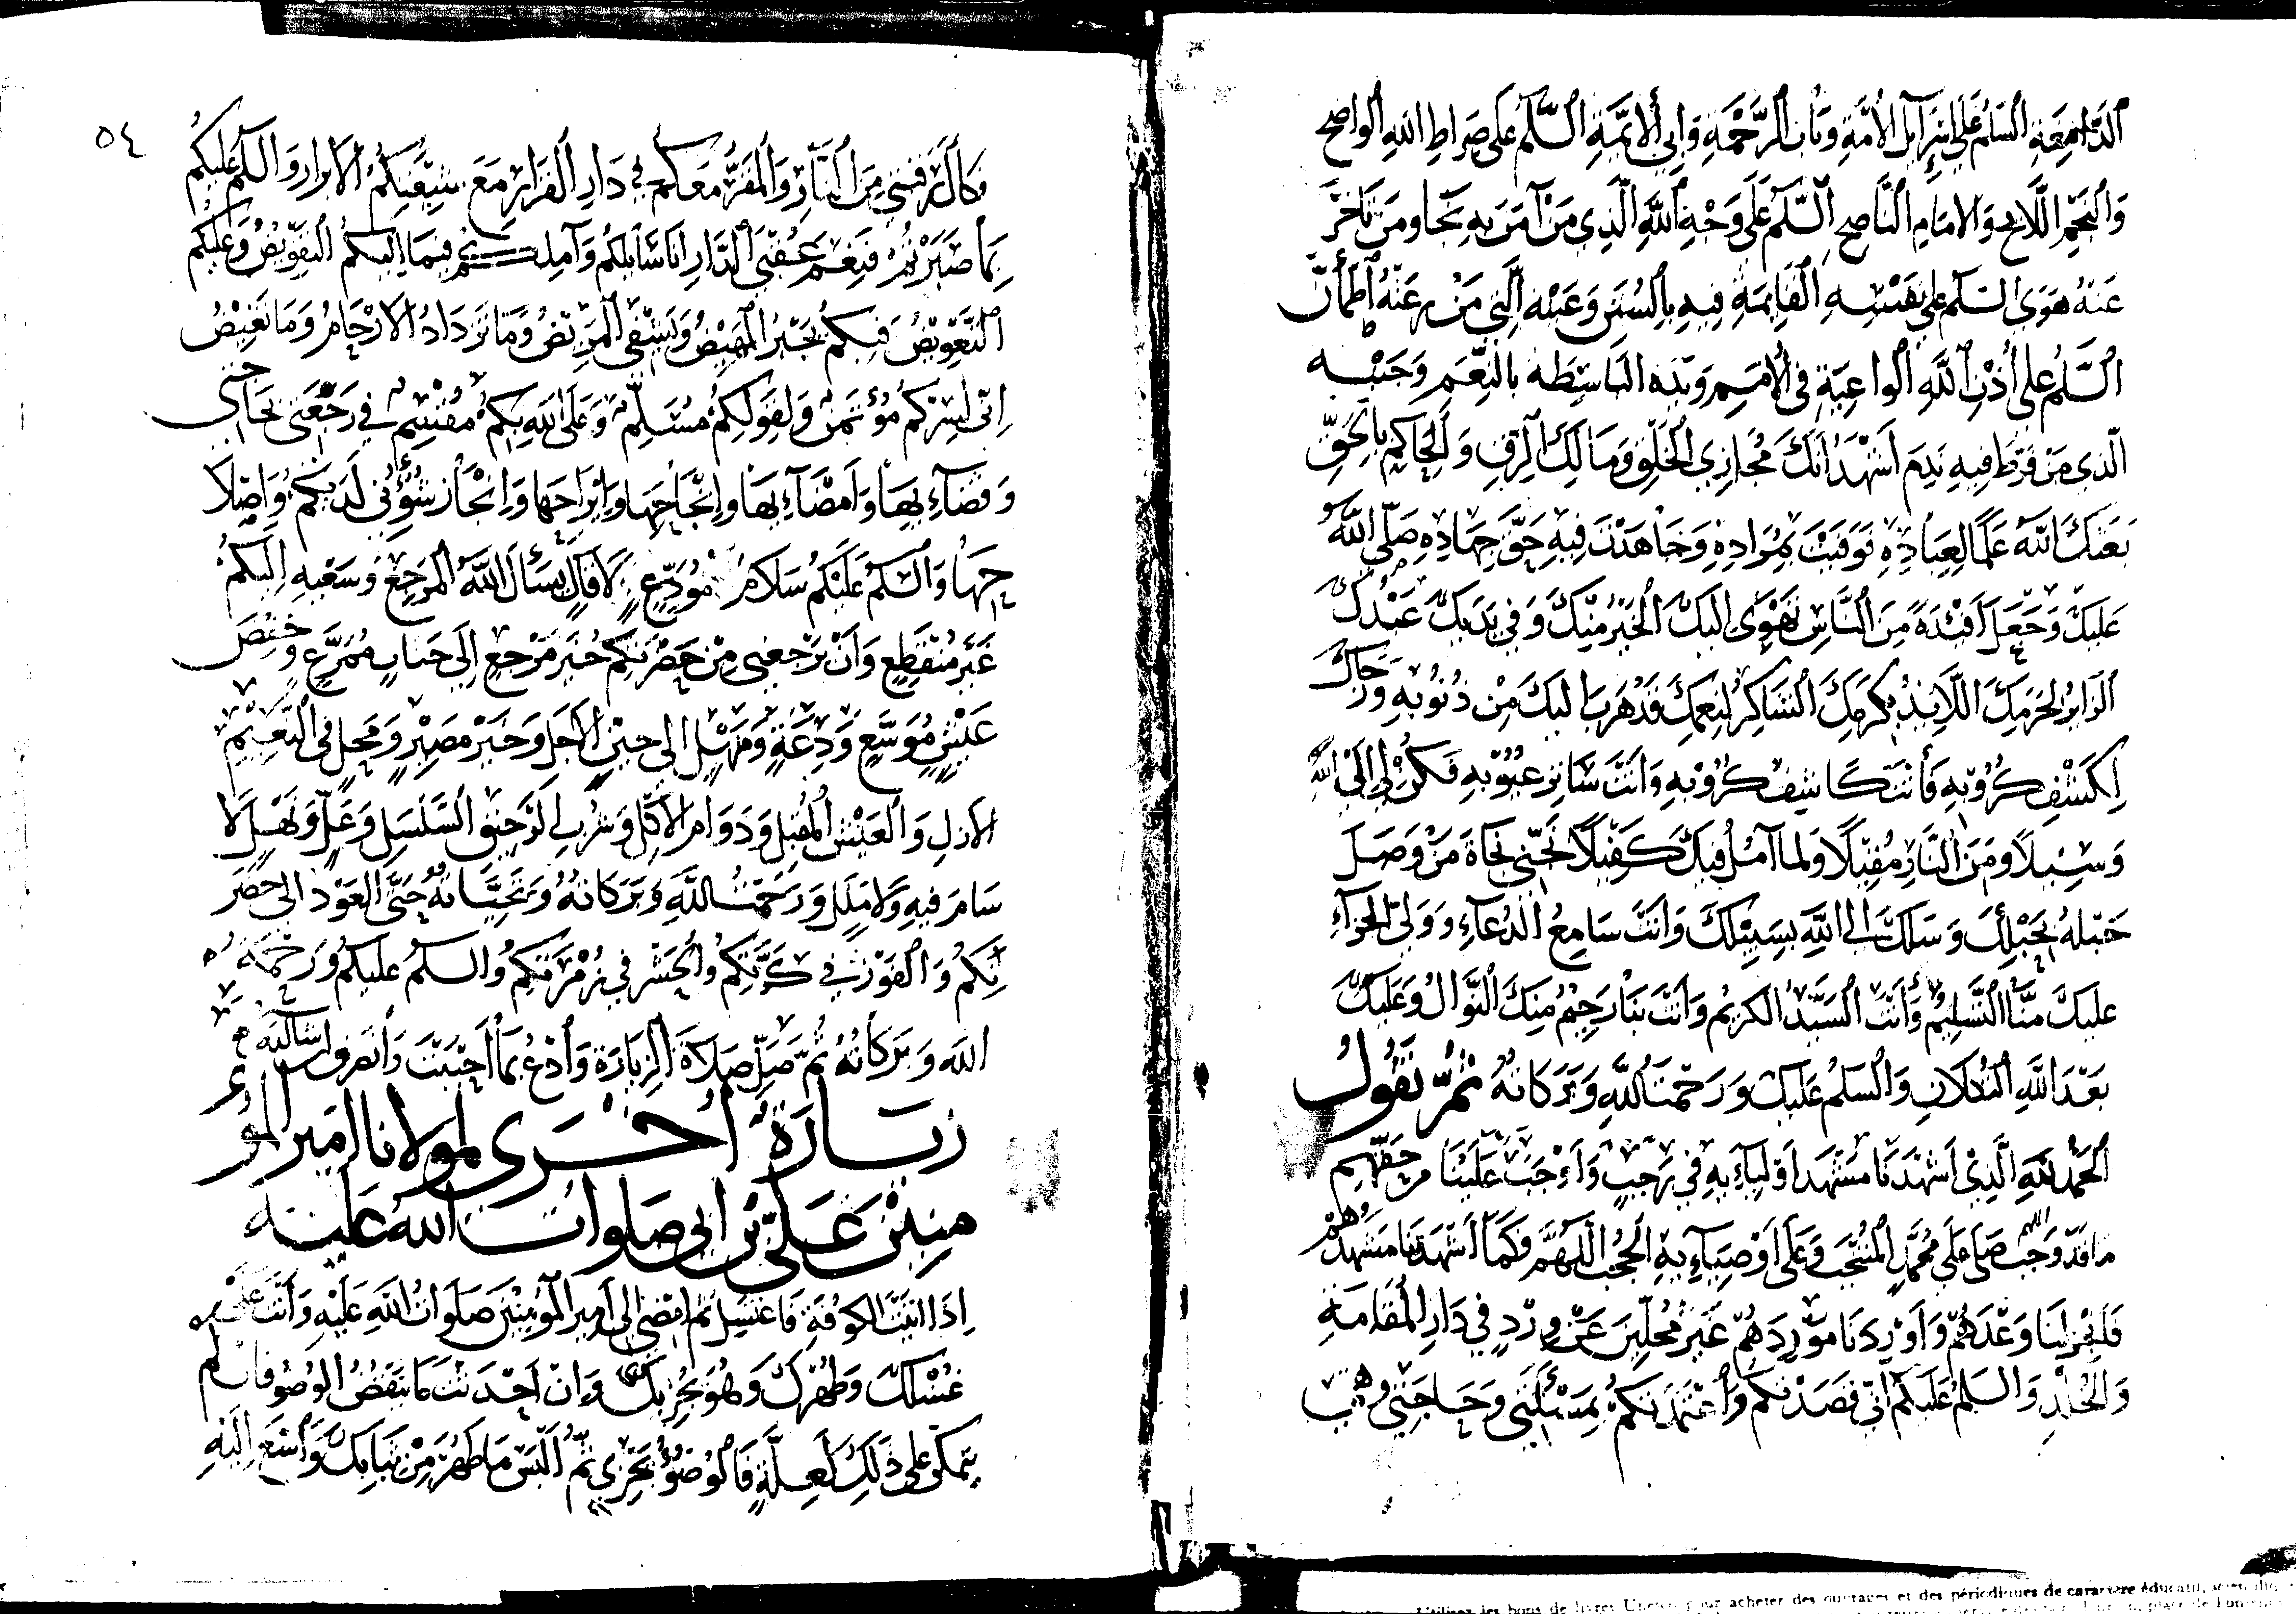 الدَّامِغَةِ السَّلَمُ عَلَى إِسْرَآئِيلَ الأُمَّةِ وَبَابِ الرَّحْمَةِ وَأَبِي الأَئِمَّةِ السَّلَمُ عَلَى صِرَاطِ اللَّهِ الوَاضِحِ
وَالنَّجْمِ اللَّائِحِ وَالإِمَامِ النَّاصِحِ السَّلَمُ عَلَى وَجْهِ اللَّهِ الَّذِي مَنْ آمَنَ بِهِ نَجَا وَمَنْ تَأَخَّرَ
عَنْهُ هَوَى السَّلَمُ عَلَى نَفْسِهِ القَائِمَةِ فِيهِ بِالسُّنَنِ وَعَيْنِهِ الَّتِي مَنْ عَنْهُ اطْمَأَنَّ
السَّلَمُ عَلَى أُذُنِ اللَّهِ الوَاعِيَةِ فِي الأُمَمِ وَيَدِهِ البَاسِطَةِ بِالنِّعَمِ وَجَنْبِهِ
الَّذِي مَنْ فَرَّطَ فِيهِ نَدِمَ أَشْهَدُ أَنَّكَ مُجَازِي الخَلْقِ وَمَالِكُ الرِّزْقِ وَالحَاكِمُ بِالحَقِّ
بَعَثَكَ اللَّهُ عَلَمًا لِعِبَادِهِ فَوَفَيْتَ بِمُرَادِهِ وَجَاهَدْتَ فِيهِ حَقَّ جِهَادِهِ صَلَّى اللَّهُ
عَلَيْكَ وَجَعَلَ أَفْئِدَةً مِنَ النَّاسِ تَهْوَى إِلَيْكَ الخَيْرُ مِنْكَ وَفِي يَدَيْكَ عَبْدُكَ
الزَّائِرُ لِحَرَمِكَ اللَّائِذُ بِكَرَمِكَ الشَّاكِرُ لِنِعَمِكَ قَدْ هَرَبَ إِلَيْكَ مِنْ ذُنُوبِهِ وَرَجَاكَ
لِكَشْفِ كُرُوبِهِ فَأَنْتَ كَاشِفُ كُرُوبِهِ وَأَنْتَ سَاتِرُ عُيُوبِهِ فَكُنْ لِي إِلَى اللَّهِ
وَسَبِيلًا وَمِنَ النَّارِ مُقِيلًا وَلِمَا آمُلُ فِيكَ كَفِيلًا نَجِّنِي نَجَاةَ مَنْ وَصَلَ
حَبْلَهُ بِحَبْلِكَ وَسَلَكَ إِلَى اللَّهِ بِسَبِيلِكَ وَأَنْتَ سَامِعُ الدُّعَآءِ وَوَلِيُّ الجَزَآءِ
عَلَيْكَ مِنَّا التَّسْلِيمُ وَأَنْتَ السَّيِّدُ الكَرِيمُ وَأَنْتَ بِنَا رَحِيمٌ مِنْكَ النَّوَالُ وَعَلَيْكَ
بَعْدَ اللَّهِ التُّكْلَانِ وَالسَّلَمُ عَلَيْكَ وَرَحْمَتُ اللَّهِ وَبَرَكَاتُهُ ثُمَّ تَقُولُ
الحَمْدُ لِلَّهِ الَّذِي أَشْهَدَنَا مَشْهَدَ أَوْلِيَآئِهِ فِي رَجَبٍ وَأَوْجَبَ عَلَيْنَا مِنْ حَقِّهِمْ
مَا قَدْ وَجَبَ صَلَّى اللَّهُ عَلَى مُحَمَّدٍ المُنْتَجَبِ وَعَلَى أَوْصِيَآئِهِ الحُجُبِ اللَّهُمَّ فَكَمَا أَشْهَدْتَنَا مَشْهَدَهُمْ
فَأَنْجِزْ لَنَا وَعْدَهُمْ وَأَوْرِدْنَا مَوْرِدَهُمْ غَيْرَ مُحَلَّئِينَ عَنْ وِرْدٍ فِي دَارِ المُقَامَةِ
وَالخُلْدِ وَالسَّلَمُ عَلَيْكُمْ إِنِّي قَصَدْتُكُمْ وَاعْتَمَدْتُكُمْ بِمَسْئَلَتِي وَحَاجَتِي وَهِيَ
٥٤
فَكَاكُ رَقَبَتِي مِنَ النَّارِ وَالمَقَرُّ مَعَكُمْ فِي دَارِ القَرَارِ مَعَ شِيعَتِكُمُ الأَبْرَارِ وَالسَّلَمُ عَلَيْكُمْ
بِمَا صَبَرْتُمْ فَنِعْمَ عُقْبَى الدَّارِ أَنَا سَائِلُكُمْ وَآمِلُكُمْ فِيمَا إِلَيْكُمُ التَّفْوِيضُ وَعَلَيْكُمُ
التَّعْوِيضُ فَبِكُمْ يُجْبَرُ المَهِيضُ وَيُشْفَى المَرِيضُ وَمَا تَزْدَادُ الأَرْحَامُ وَمَا تَغِيضُ
إِنِّي بِسِرِّكُمْ مُؤْتَمَنٌ وَلِقَوْلِكُمْ مُسَلِّمٌ وَعَلَى اللَّهِ بِكُمْ مُقْسِمٌ فِي رَجْعَتِي بِحَوَائِجِي
وَقَضَآئِهَا وَإِمْضَآئِهَا وَإِنْجَاحِهَا وَإِبْرَاحِهَا وَإِنْجَازِ شُؤُنِي لَدَيْكُمْ وَإِصْلَا
حِهَا وَالسَّلَمُ عَلَيْكُمْ سَلَامُ مُوَدِّعٍ لَا قَالٍ يَسْأَلُ اللَّهَ المَرْجِعَ وَسَعْيَهُ إِلَيْكُمْ
غَيْرَ مُنْقَطِعٍ وَأَنْ يُرْجِعَنِي مِنْ حَضْرَتِكُمْ خَيْرَ مَرْجِعٍ إِلَى جَنَابٍ مُمْرَعٍ وَخَفْضِ
عَيْشٍ مُوَسَّعٍ وَدِعَةٍ وَمَهَلٍ إِلَى حِينِ الأَجَلِ وَخَيْرِ مَصِيرٍ وَمَحَلٍّ فِي النَّعِيمِ
الأَزَلِ وَالعَيْشِ المُقْبِلِ وَدَوَامِ الأُكُلِ وَشُرْبِ الرَّحِيقِ السَّلْسَلِ وَعَلٍّ وَنَهَلٍ لَا
سَأَمَ فِيهِ وَلَا مَلَلَ وَرَحْمَتُ اللَّهِ وَبَرَكَاتُهُ وَتَحِيَّاتُهُ حَتَّى العَوْدِ إِلَى حَضْرَ
تِكُمْ وَالفَوْزِ فِي كَرَّتِكُمْ وَالحَشْرِ فِي زُمْرَتِكُمْ وَالسَّلَمُ عَلَيْكُمْ وَرَحْمَةُ
اللَّهِ وَبَرَكَاتُهُ ثُمَّ صَلِّ صَلَاةَ الزِّيَارَةِ وَادْعُ بِمَا أَحْبَبْتَ وَانْصَرِفْ
زِيَارَةٌ أُخْرَى لِمَوْلَانَا أَمِيرِ المُؤْ
مِنِينَ عَلِيِّ بْنِ أَبِي صَلَوَاتُ اللَّهِ عَلَيْهِ
إِذَا أَتَيْتَ الكُوفَةِ فَاغْتَسِلْ ثُمَّ امْضِ إِلَى أَمِيرِ المُؤْمِنِينَ صَلَوَاتُ اللَّهِ عَلَيْهِ وَأَنْتَ عَلَى
غُسْلِكَ وَطُهْرِكَ وَهُوَ يُجْزِيكَ وَإِنْ أَحْدَثْتَ مَا يَنْقُضُ الوُضُو فَإِنْ لَمْ
يُمْكِنْ عَلَى ذَلِكَ لِعِلَّةٍ فَالوُضُوءُ يُجْزِي ثُمَّ الْبَسْ مَا طَهُرَ مِنْ ثِيَابِكَ وَاسْعَ إِلَيْهِ
acheter des ouvrages et des périodiques de caractère éducatif,